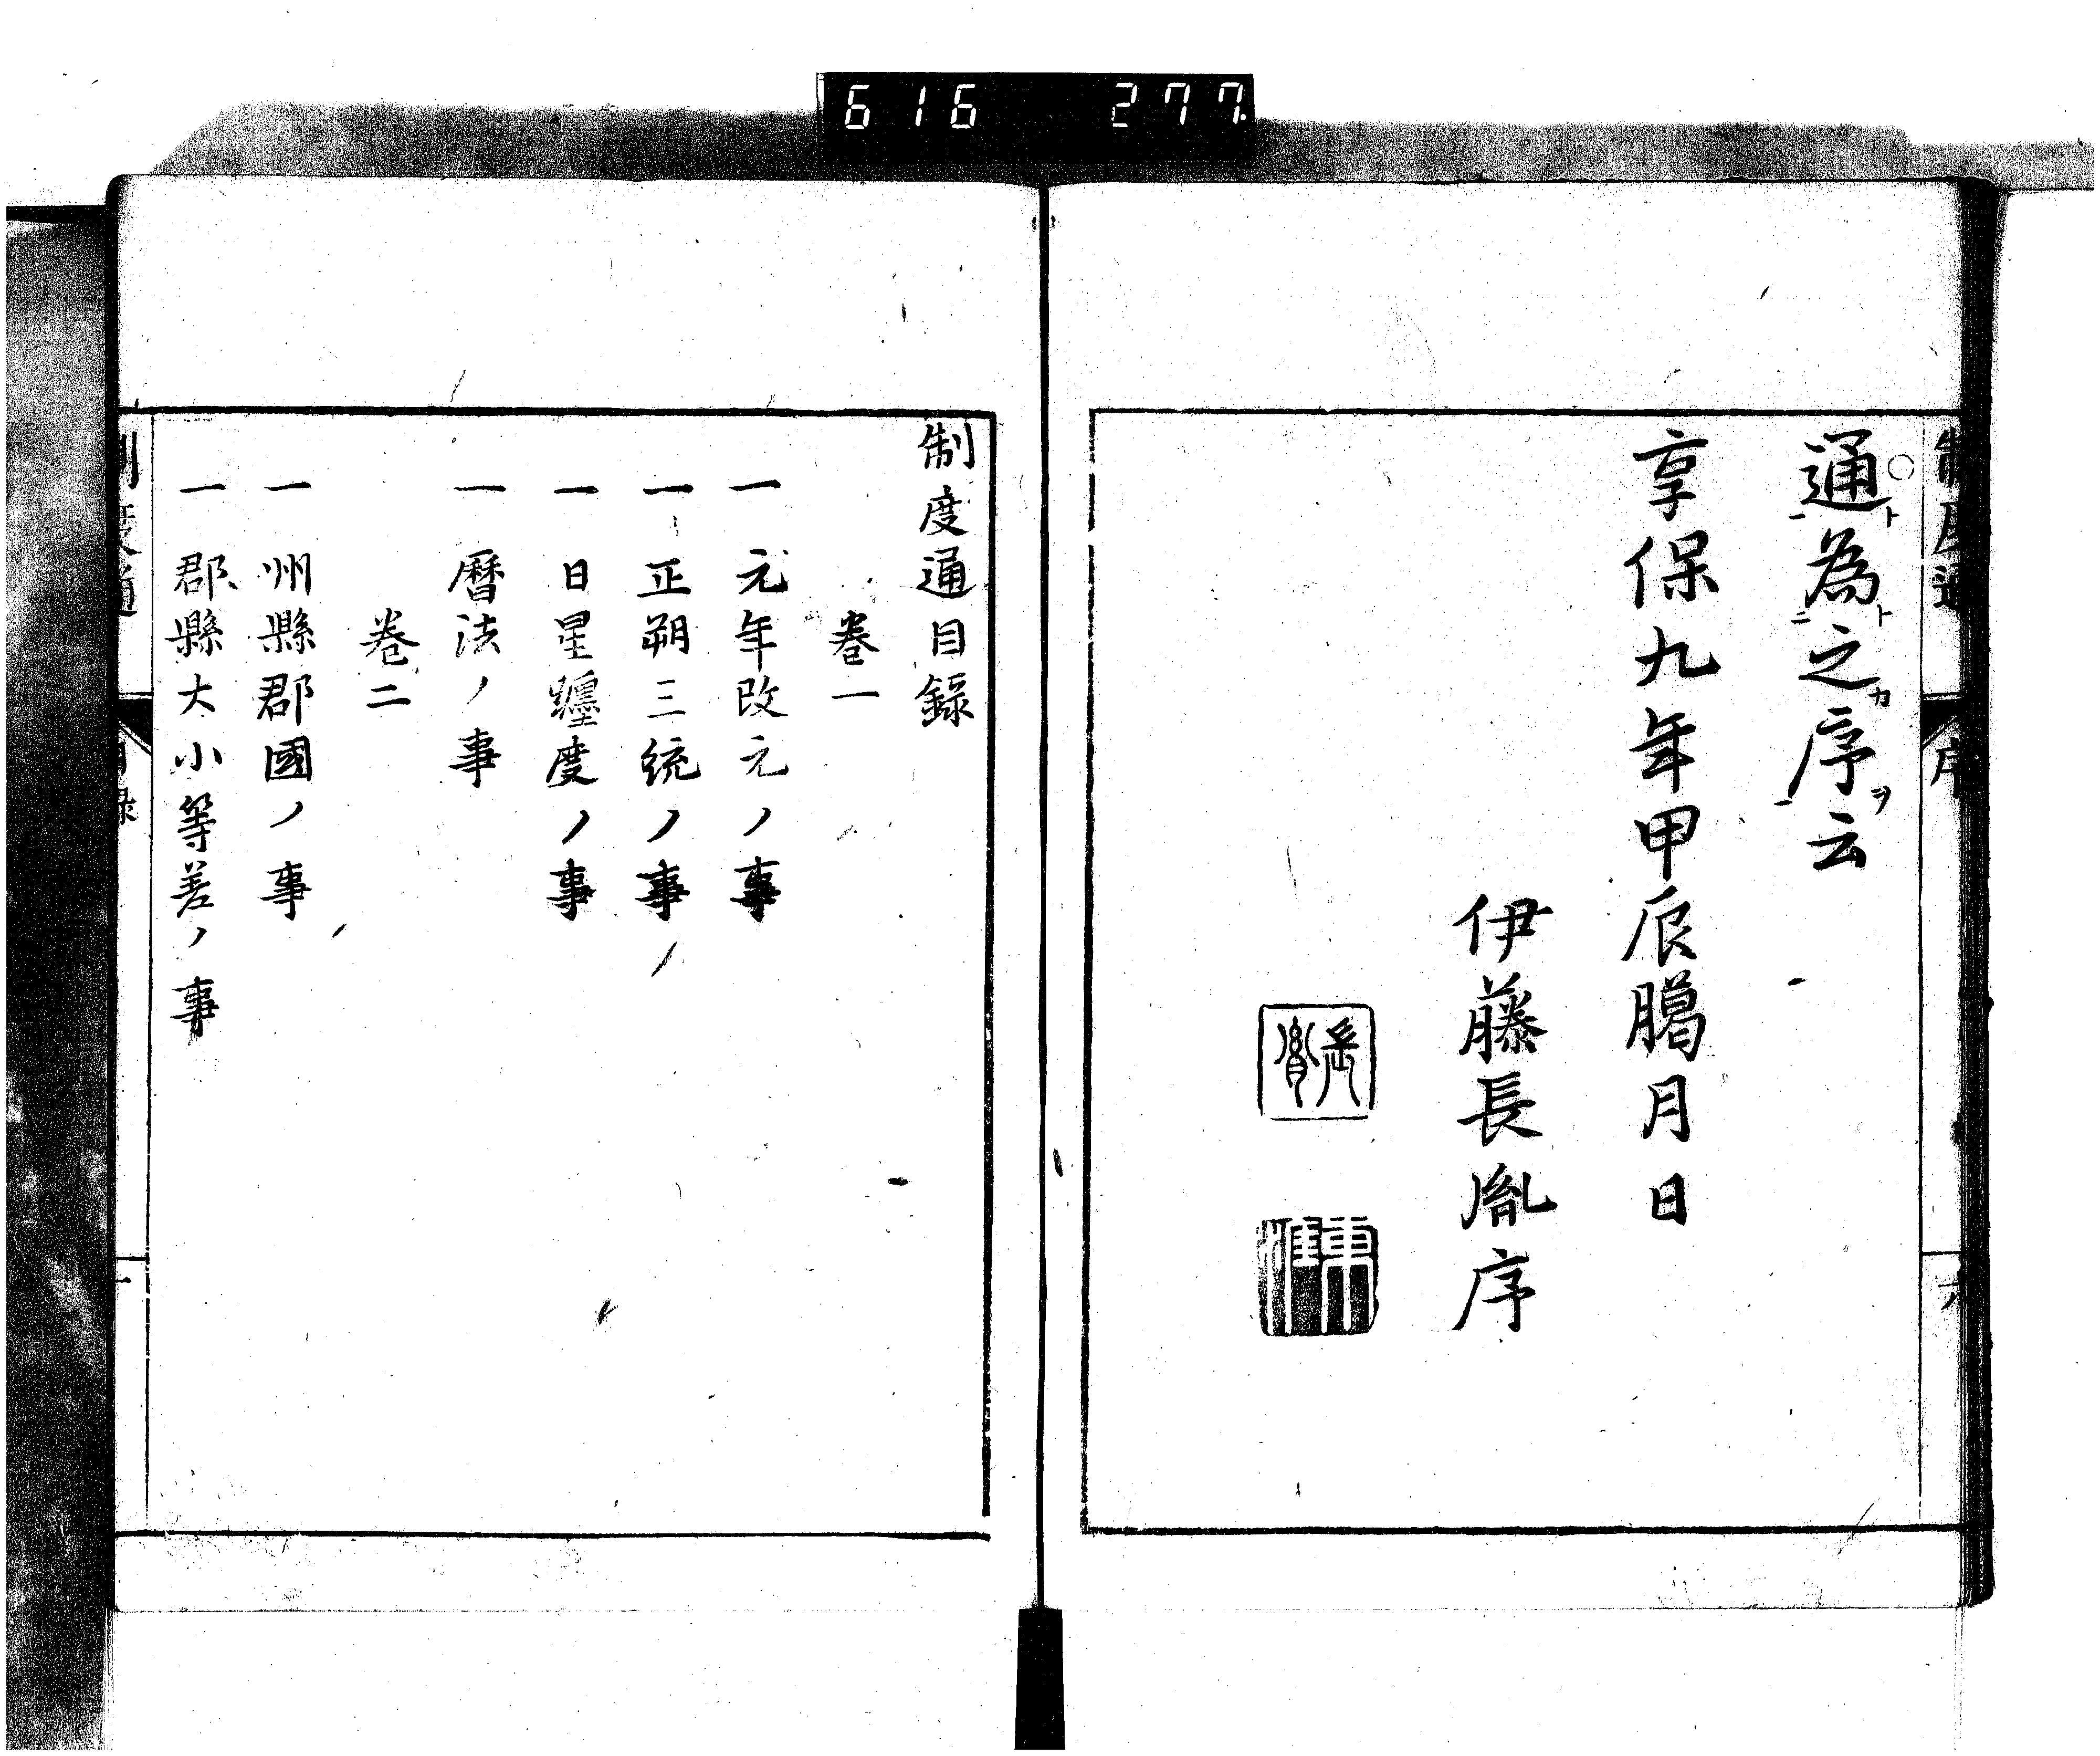 616 277
通為之序云
享保九年甲辰臈月日
伊藤長胤序
長胤
制度通目録
巻一
一 元年改元ノ事
一 正朔三統ノ事
一 日星躔度ノ事
一 暦法ノ事
巻二
一 州縣郡國ノ事
一 郡縣大小等差ノ事